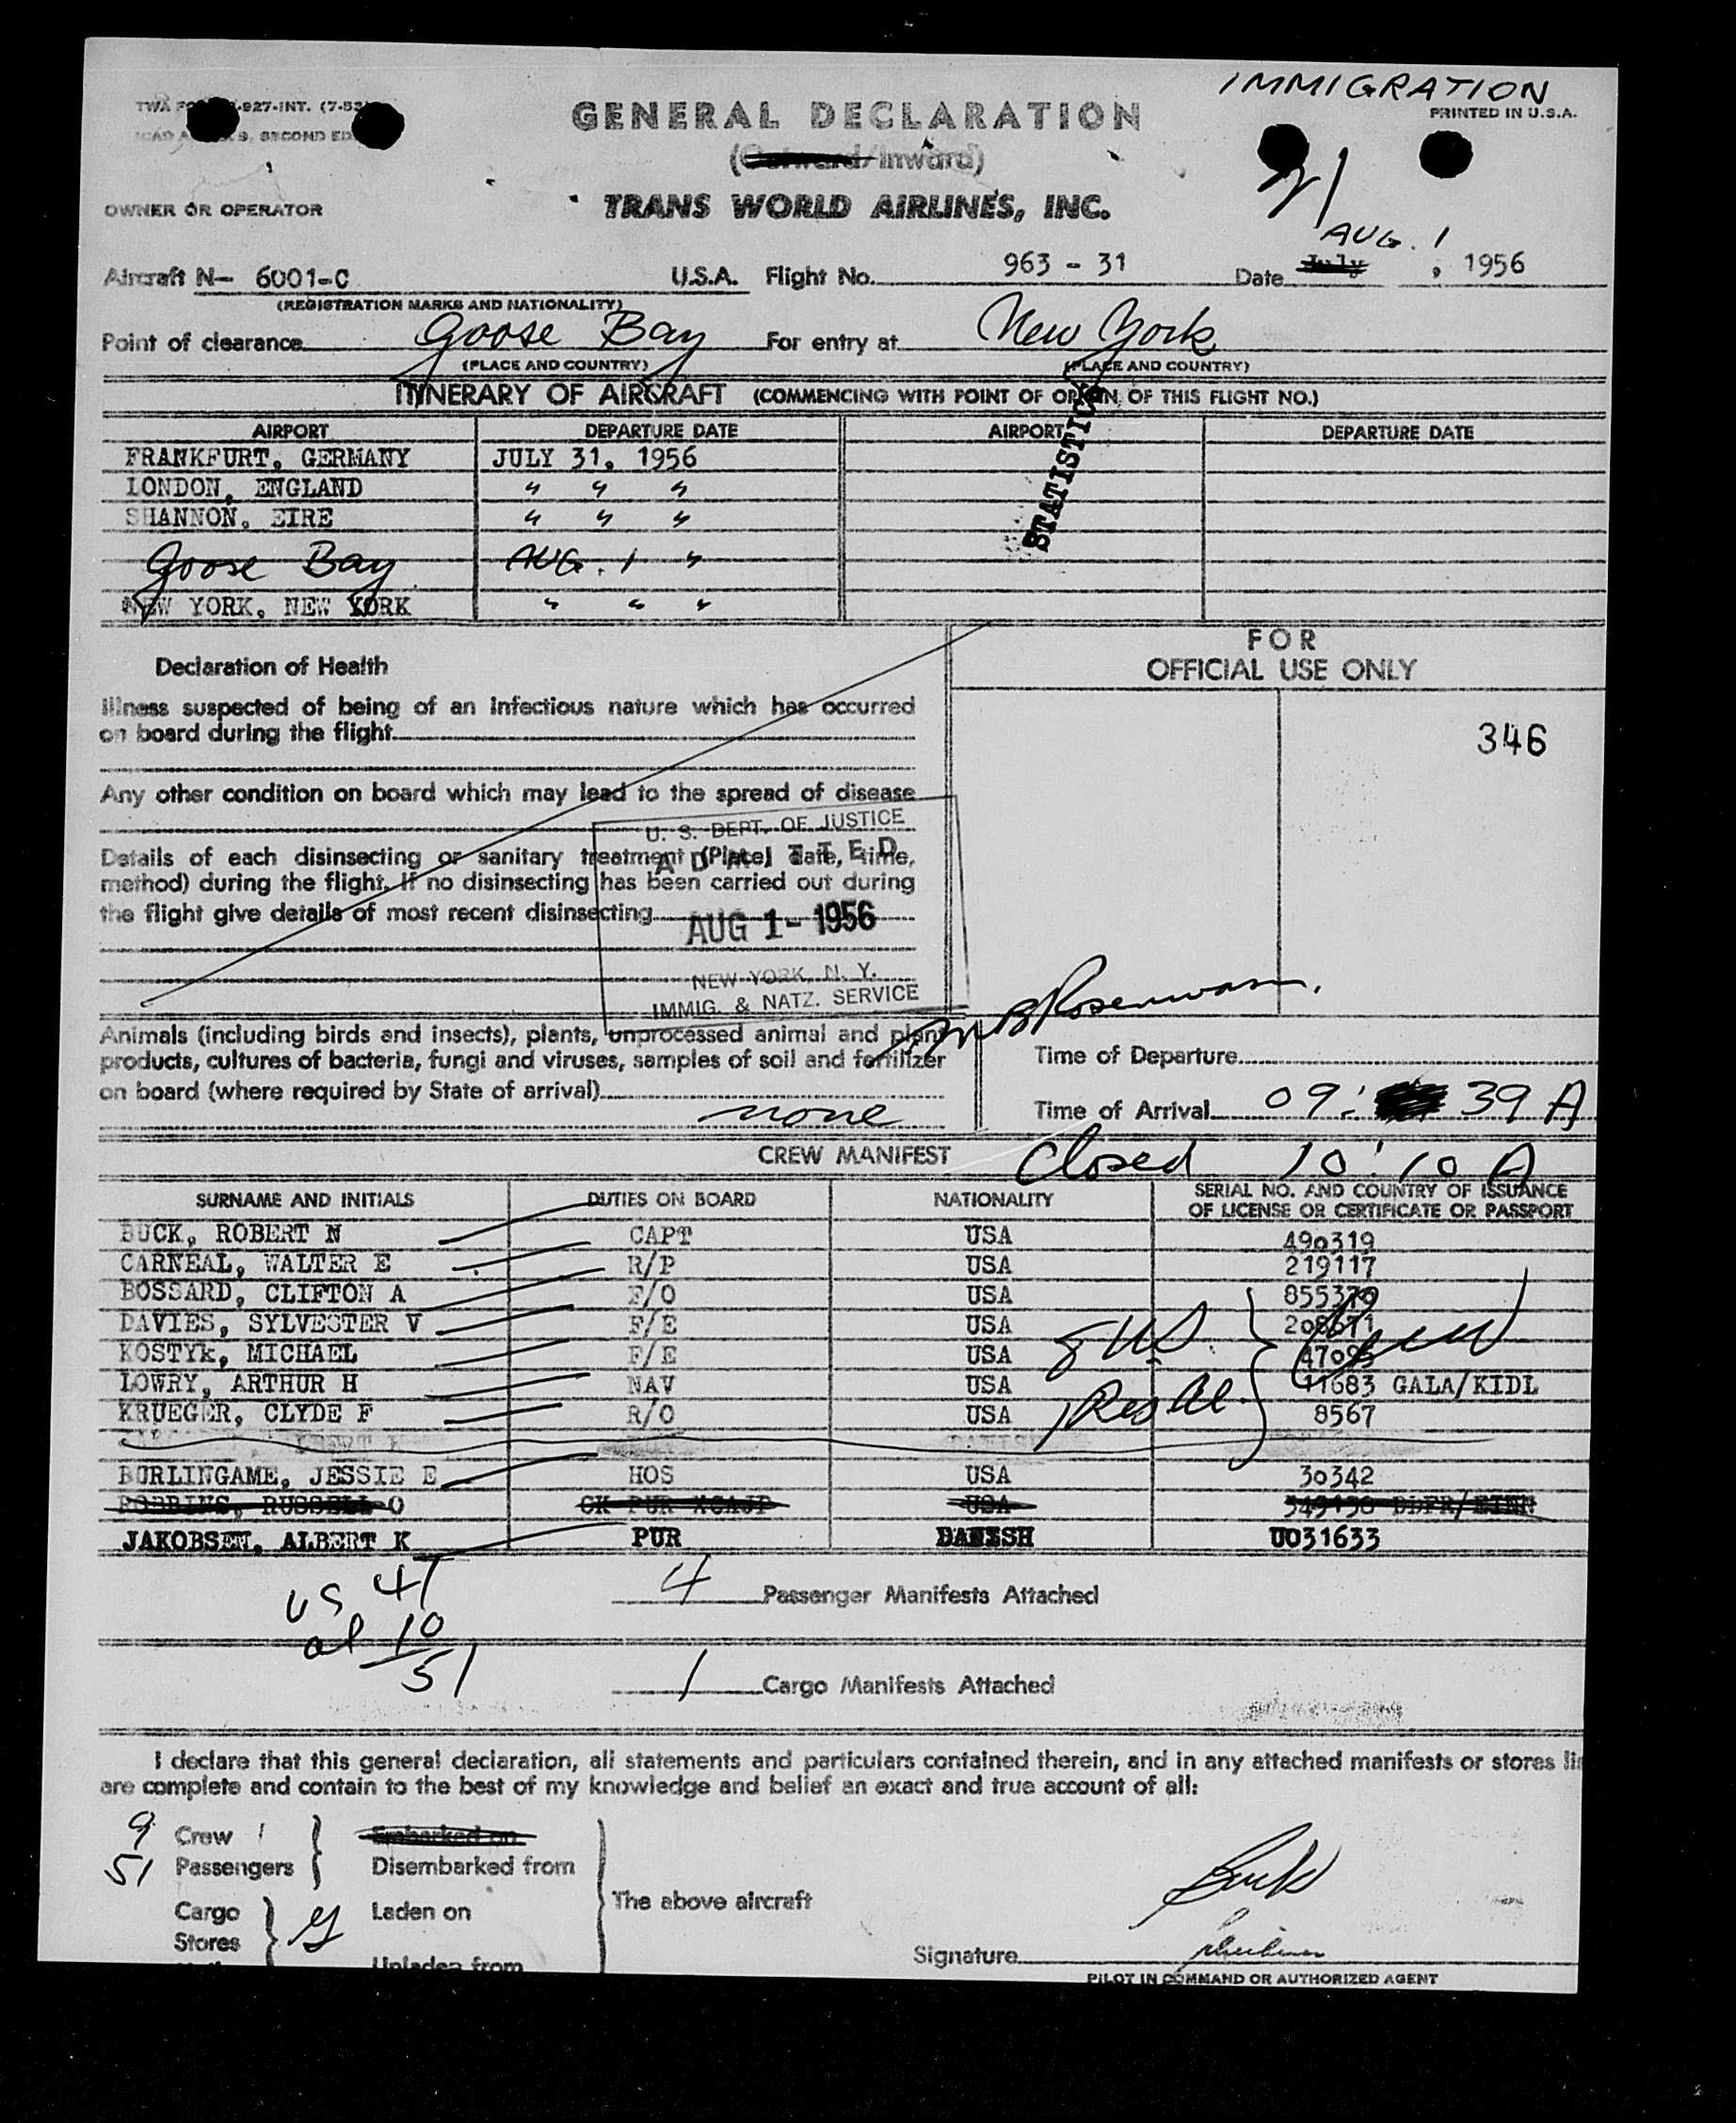 IMMIGRATION
PRINTED IN U.S.A.
GENERAL DECLARATION
(Outward/Inward)
TRANS WORLD AIRLINES, INC.
OWNER OR OPERATOR
AUG. 1
Aircraft N- 6001-C U.S.A. Flight No. 963 - 31 Date July, 1956
(REGISTRATION MARKS AND NATIONALITY)
Point of clearance Goose Bay For entry at New York
(PLACE AND COUNTRY) (PLACE AND COUNTRY)
ITINERARY OF AIRCRAFT (COMMENCING WITH POINT OF ORIGIN, OF THIS FLIGHT NO.)
STATISTICS
AIRPORT DEPARTURE DATE AIRPORT DEPARTURE DATE
FRANKFURT, GERMANY JULY 31, 1956
LONDON, ENGLAND " " "
SHANNON, EIRE " " "
Goose Bay AUG. 1 "
NEW YORK, NEW YORK " " "
FOR
OFFICIAL USE ONLY
346
Declaration of Health
Illness suspected of being of an infectious nature which has occurred
on board during the flight
Any other condition on board which may lead to the spread of disease
Details of each disinsecting or sanitary treatment (Place, date, time,
method) during the flight. If no disinsecting has been carried out during
the flight give details of most recent disinsecting
U. S. DEPT. OF JUSTICE
ADMITTED
AUG 1 - 1956
NEW YORK, N. Y.
IMMIG. & NATZ. SERVICE
Animals (including birds and insects), plants, unprocessed animal and plant
products, cultures of bacteria, fungi and viruses, samples of soil and fertilizer
on board (where required by State of arrival)
none
Time of Departure
Time of Arrival 09: 39 A
CREW MANIFEST Closed 10:10 A
SURNAME AND INITIALS DUTIES ON BOARD NATIONALITY SERIAL NO. AND COUNTRY OF ISSUANCE
OF LICENSE OR CERTIFICATE OR PASSPORT
BUCK, ROBERT N CAPT USA 490319
CARNEAL, WALTER E R/P USA 219117
BOSSARD, CLIFTON A F/O USA
DAVIES, SYLVESTER V F/E USA
KOSTYk, MICHAEL F/E USA
LOWRY, ARTHUR H NAV USA 11683 GALA/KIDL
KRUEGER, CLYDE F R/O USA 8567
BURLINGAME, JESSIE E HOS USA 30342
ROBBINS, RUSSELL O CK PUR USA
JAKOBSEN, ALBERT K PUR DANISH U031633
US 41
al 10
51
4 Passenger Manifests Attached
1 Cargo Manifests Attached
I declare that this general declaration, all statements and particulars contained therein, and in any attached manifests or stores
are complete and contain to the best of my knowledge and belief an exact and true account of all:
9 Crew Embarked on
51 Passengers Disembarked from
Cargo Laden on
Stores
Unladen from
The above aircraft
Buck
Signature
PILOT IN COMMAND OR AUTHORIZED AGENT